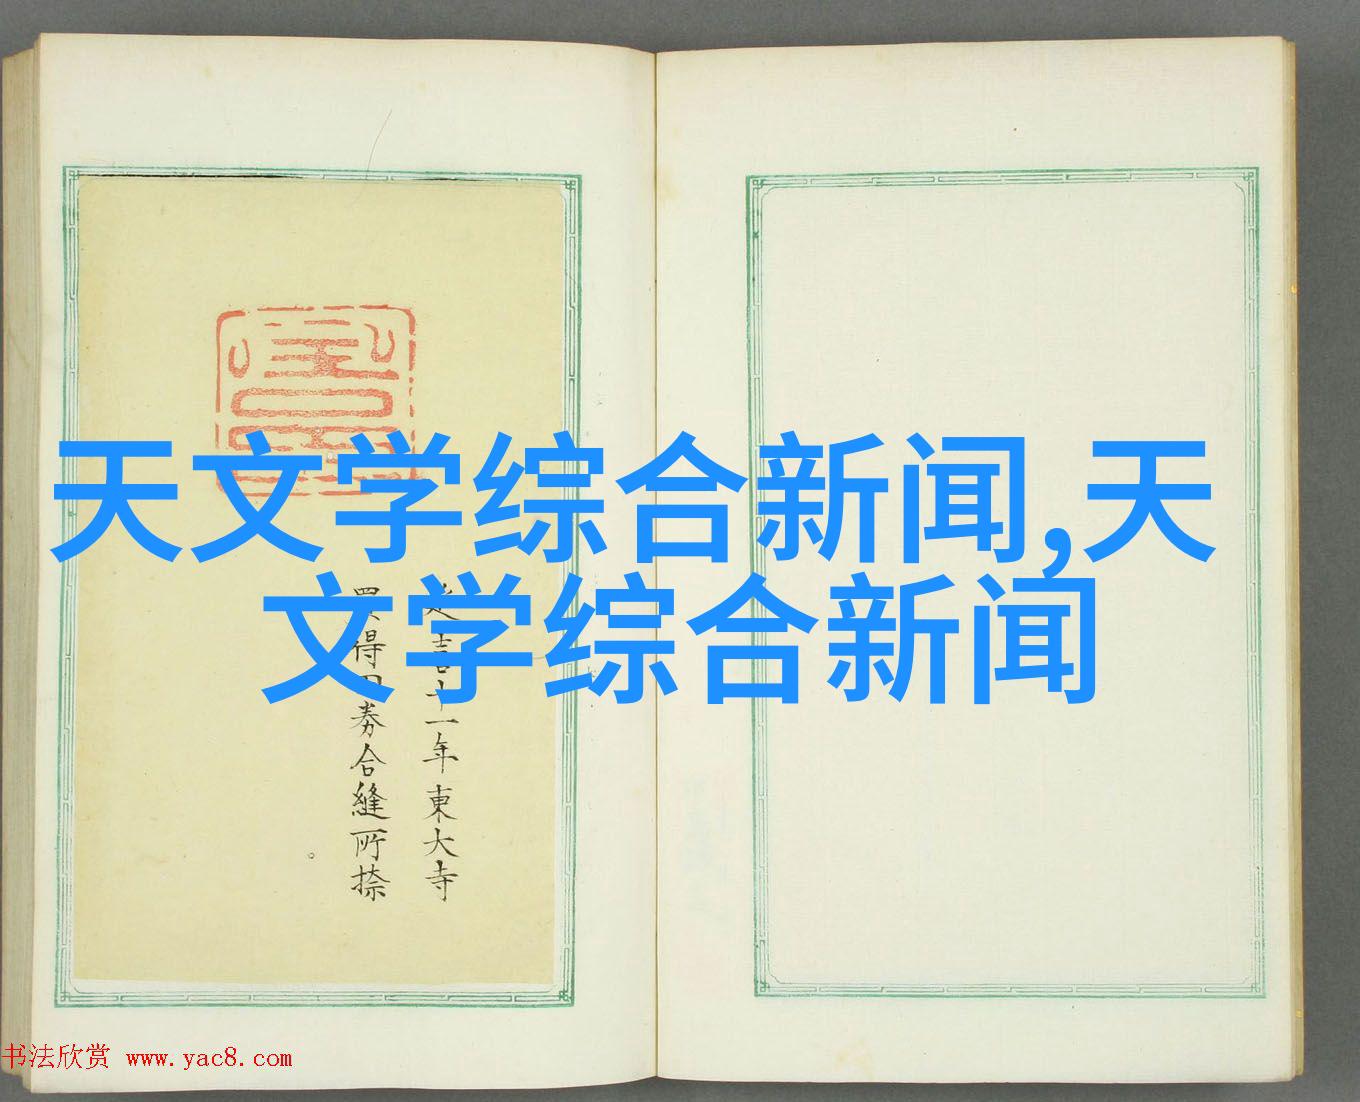 天文学综合新闻,天
文学综合新闻
延喜十一年東大寺
買得田券合縫所捺
书法欣赏 www.yac8.com